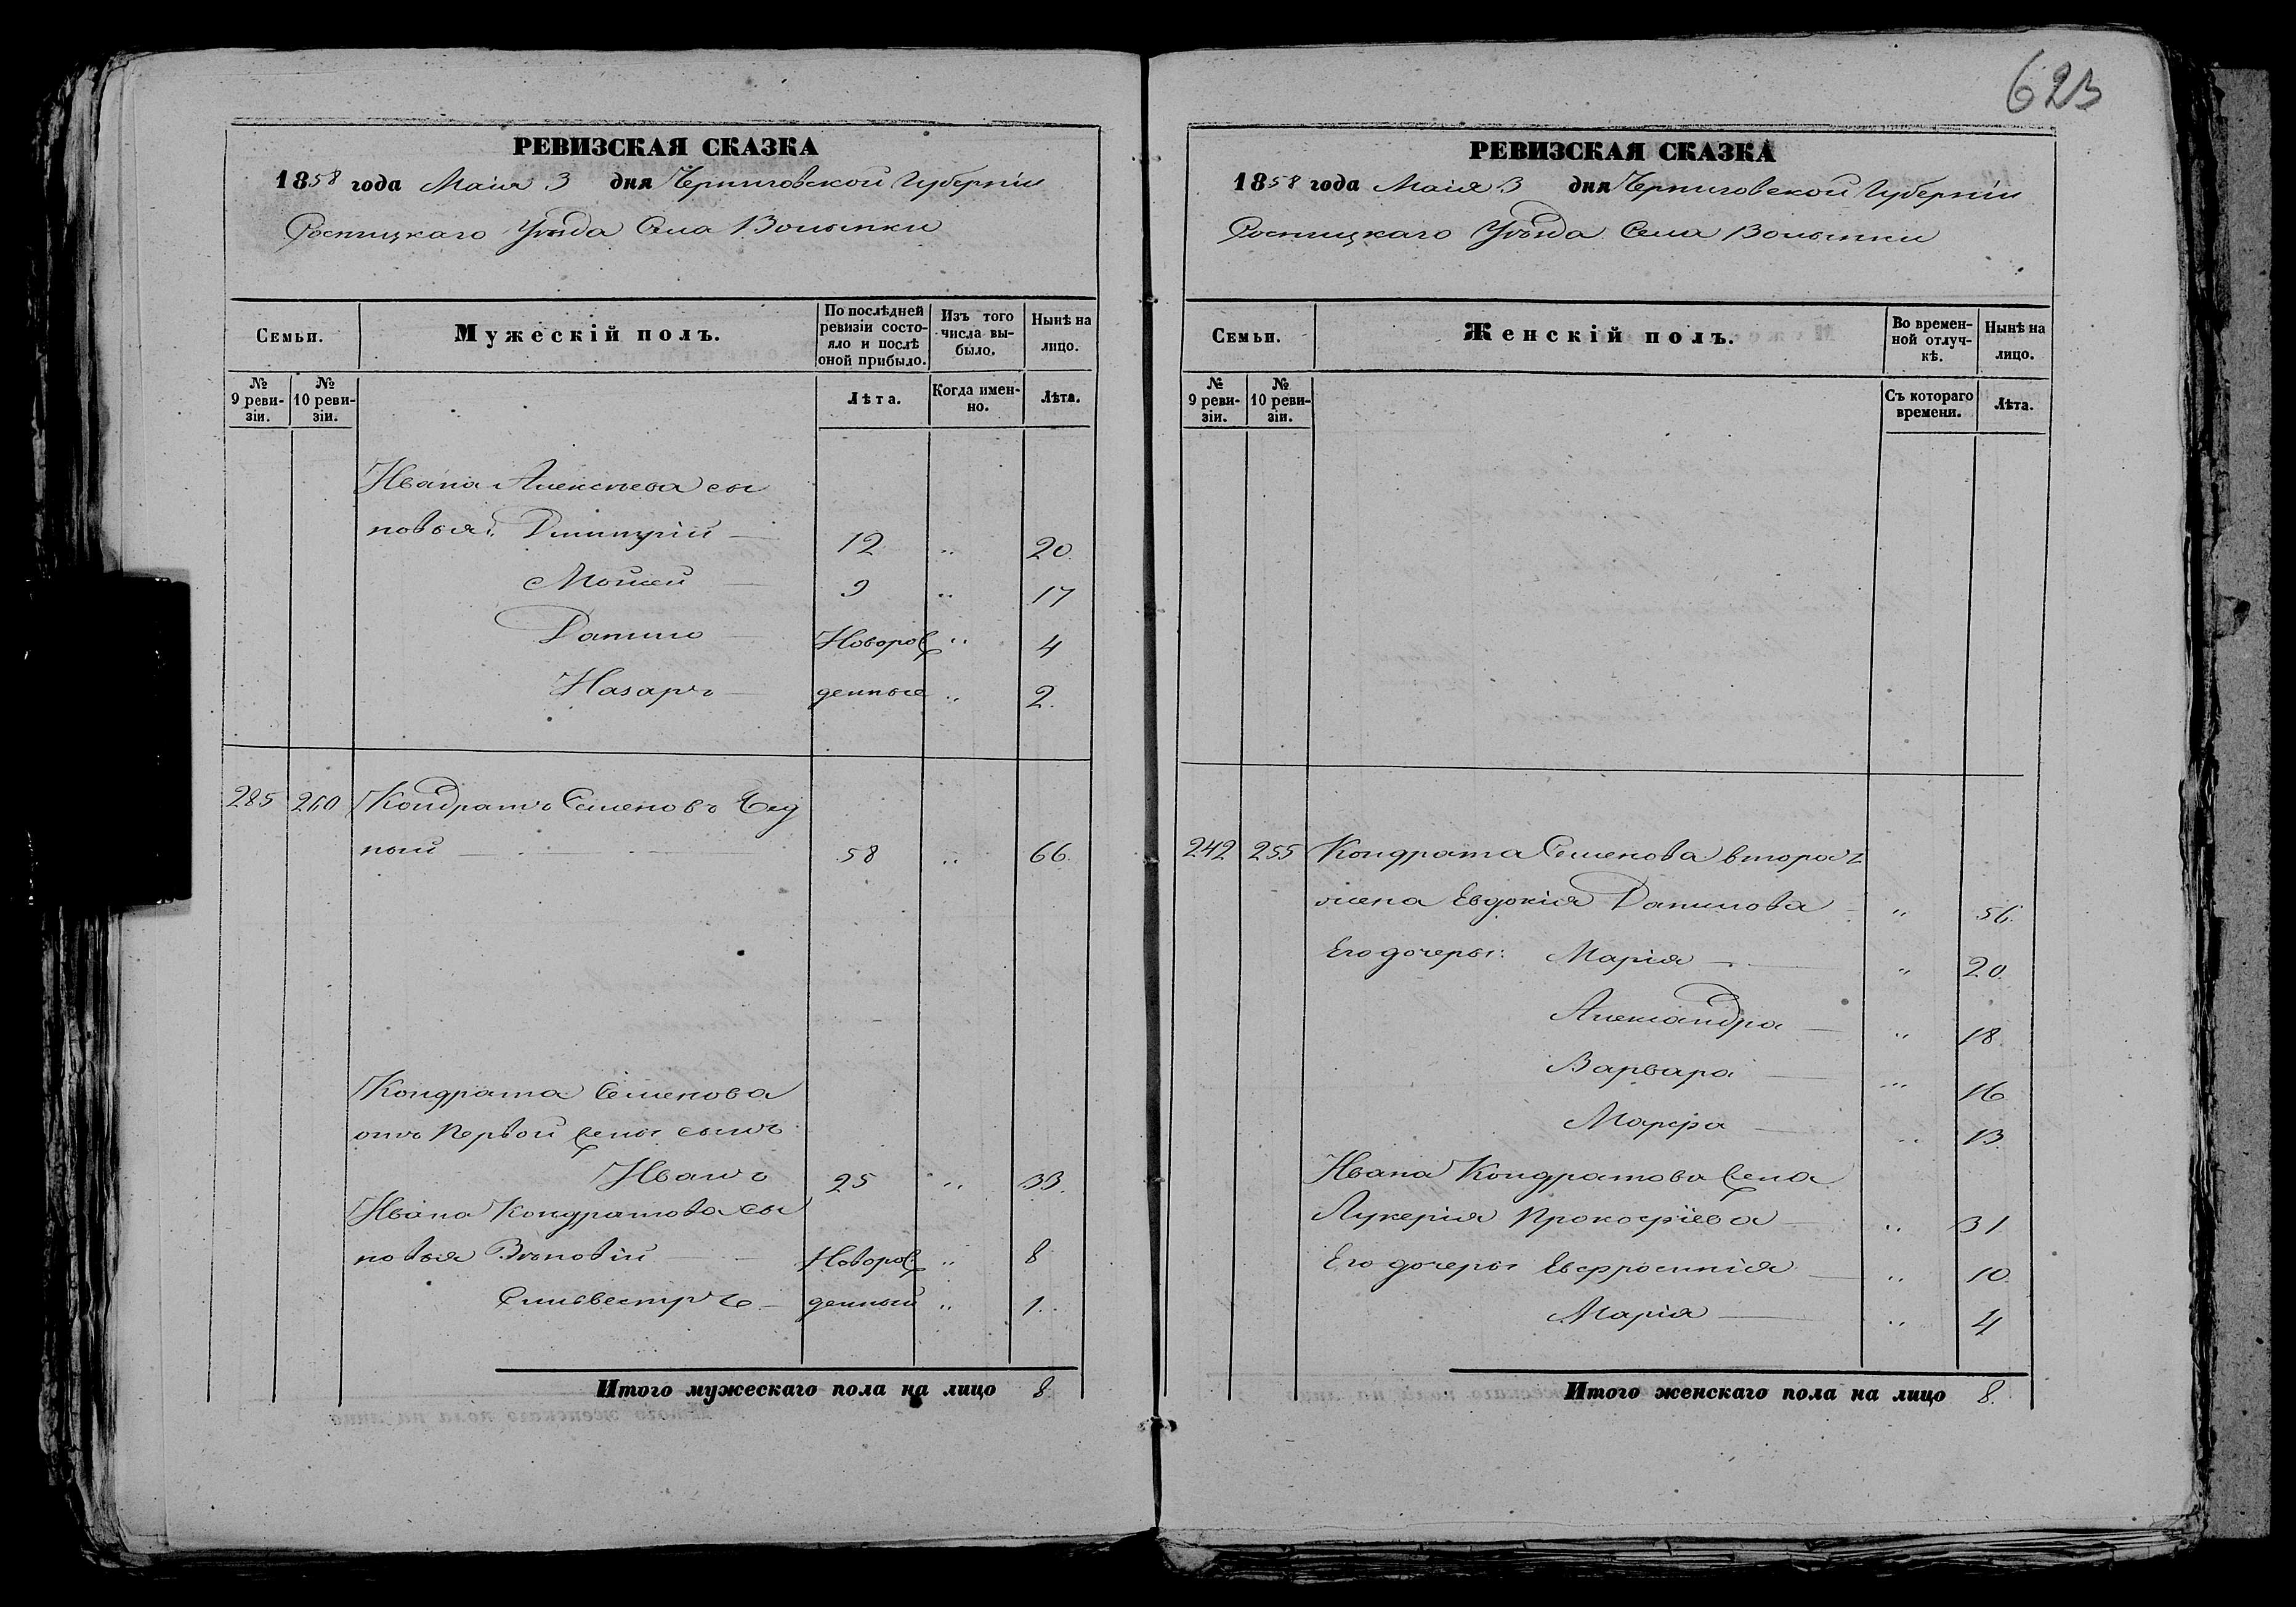 623
РЕВИЗСКАЯ СКАЗКА
1858 года Маія 3 дня Черниговской Губерніи
Сосницкаго Уѣзда Села Волынки
Семьи.
Мужескій полъ.
По послѣдней ревизіи состояло и послѣ оной прибыло.
Изъ того числа выбыло.
Нынѣ на лицо.
№ 9 ревизіи.
№ 10 ревизіи.
Лѣта.
Когда именно.
Лѣта.
Ивана Алексѣева сы
новья: Димитрій — 12 „ 20.
Мойсей — 9 „ 17
Данило — Новорож „ 4
Назаръ — денные „ 2.
285 260 Кондратъ Семеновъ
ный — 58 „ 66.
Кондрата Семенова
отъ первой жены сынъ
Иванъ 25 „ 33.
Ивана Кондратова сы
новья Зѣновій — Новорож „ 8
Сильвестръ — денный „ 1.
Итого мужескаго пола на лицо 8
РЕВИЗСКАЯ СКАЗКА
1858 года Маія 3 дня Черниговской Губерніи
Сосницкаго Уѣзда Села Волынки
Семьи.
Женскій полъ.
Во временной отлучкѣ.
Нынѣ на лицо.
№ 9 ревизіи.
№ 10 ревизіи.
Съ котораго времени.
Лѣта.
242 255 Кондрата Семенова втора
жена Евдокія Данилова — „ 56.
Его дочеры: Марія — „ 20.
Александра — „ 18
Варвара — „ 16
Марфа — „ 13.
Ивана Кондратова жена
Лукерія Прокофіева — „ 31
Его дочеры Евфросинія — „ 10.
Марія — „ 4
Итого женскаго пола на лицо 8.